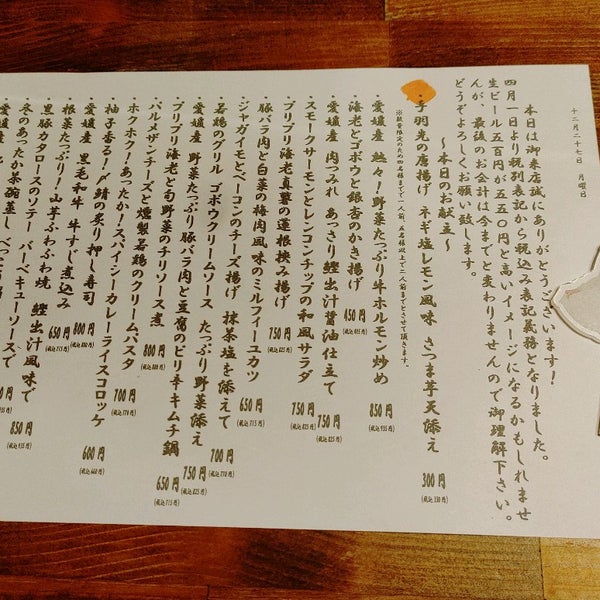 十二月二十七日 月曜日
本日は御来店誠にありがとうございます！
四月一日より税別表記から税込み表記義務となりました。
生ビール五百円が五五〇円と高いイメージになるかもしれませ
んが、最後のお会計は今までと変わりませんので御理解下さい。
どうぞよろしくお願い致します。
～本日のお献立～
・手羽先の唐揚げ ネギ塩レモン風味 さつま芋天添え 300円(税込330円)
※数量限定のため四名様までで一人前、五名様以上で二人前までとさせて頂きます。
・愛媛産 熱々！野菜たっぷり牛ホルモン炒め 850円(税込935円)
・海老とゴボウと銀杏のかき揚げ 450円(税込495円)
・愛媛産 肉つみれ あっさり鰹出汁醤油仕立て 750円(税込825円)
・スモークサーモンとレンコンチップの和風サラダ 750円(税込825円)
・プリプリ海老真薯の蓮根挟み揚げ 750円(税込825円)
・豚バラ肉と白菜の梅肉風味のミルフィーユカツ 650円(税込715円)
・ジャガイモとベーコンのチーズ揚げ 抹茶塩を添えて 700円(税込770円)
・若鶏のグリル ゴボウクリームソース たっぷり野菜添え 750円(税込825円)
・愛媛産 野菜たっぷり豚バラ肉と豆腐のピリ辛キムチ鍋 650円(税込715円)
・プリプリ海老と旬野菜のチリソース煮 800円(税込880円)
・パルメザンチーズと燻製若鶏のクリームパスタ 700円(税込770円)
・ホクホク！あったか！スパイシーカレーライスコロッケ 600円(税込660円)
・柚子香る！〆鯖の炙り押し寿司 800円(税込880円)
・愛媛産 黒毛和牛 牛すじ煮込み 650円(税込715円)
・根菜たっぷり！山芋ふわふわ焼 鰹出汁風味で
・黒豚カタロースのソテー バーベキューソースで 850円(税込935円)
・冬のあったか茶碗蒸し べっこう
愛媛産